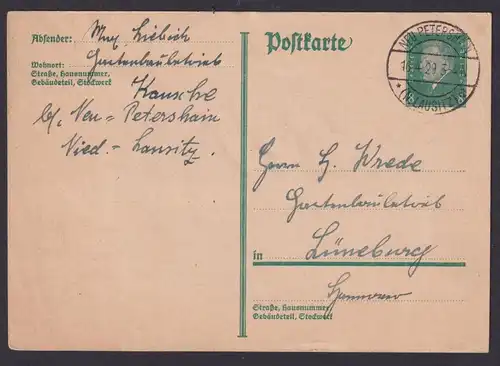 Absender: Max Liebich
Gartenbaubetrieb
Wohnort:
Straße, Hausnummer,
Gebäudeteil, Stockwerk
Kausche
b/. Neu=Petershain
Nied.=Lausitz.
Postkarte
NEU PETERSHAIN
(NL LAUSITZ)
Herrn H. Wrede
Gartenbaubetrieb
in Lüneburg
Hannover
Straße, Hausnummer,
Gebäudeteil, Stockwerk